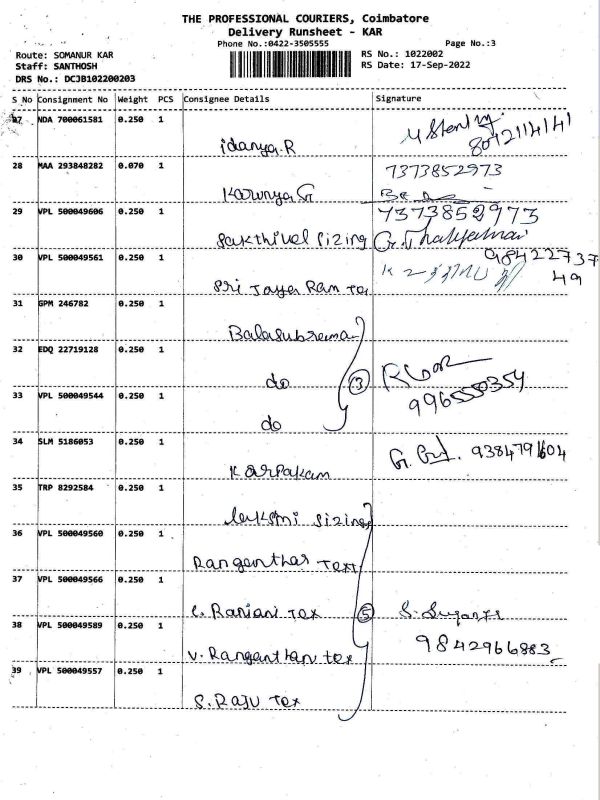 THE PROFESSIONAL COURIERS, Coimbatore
Delivery Runsheet - KAR
Phone No.:0422-3505555 Page No.:3
Route: SOMANUR KAR RS No.: 1022002
Staff: SANTHOSH RS Date: 17-Sep-2022
DRS No.: DCJB102200203
S No Consignment No Weight PCS Consignee Details Signature
27 NDA 700061581 0.250 1
idanya.R 8012114141
28 MAA 293848282 0.070 1 7373852973
Karunya G
29 VPL 500049606 0.250 1 7373852973
Sakthivel Sizing
30 VPL 500049561 0.250 1 9842273749
Sri Jaya Ram Tex
31 GPM 246782 0.250 1
Balasubreman
32 EDQ 22719128 0.250 1
do 3
33 VPL 500049544 0.250 1 9965550354
do
34 SLM 5186053 0.250 1 9384791604
Karpakam
35 TRP 8292584 0.250 1
laksmi Sizing
36 VPL 500049560 0.250 1
Ranganthar Text
37 VPL 500049566 0.250 1
C. Ranjani Tex 5
38 VPL 500049589 0.250 1 9842966883
V. Ranganthan tex
39 VPL 500049557 0.250 1
S. Raju Tex